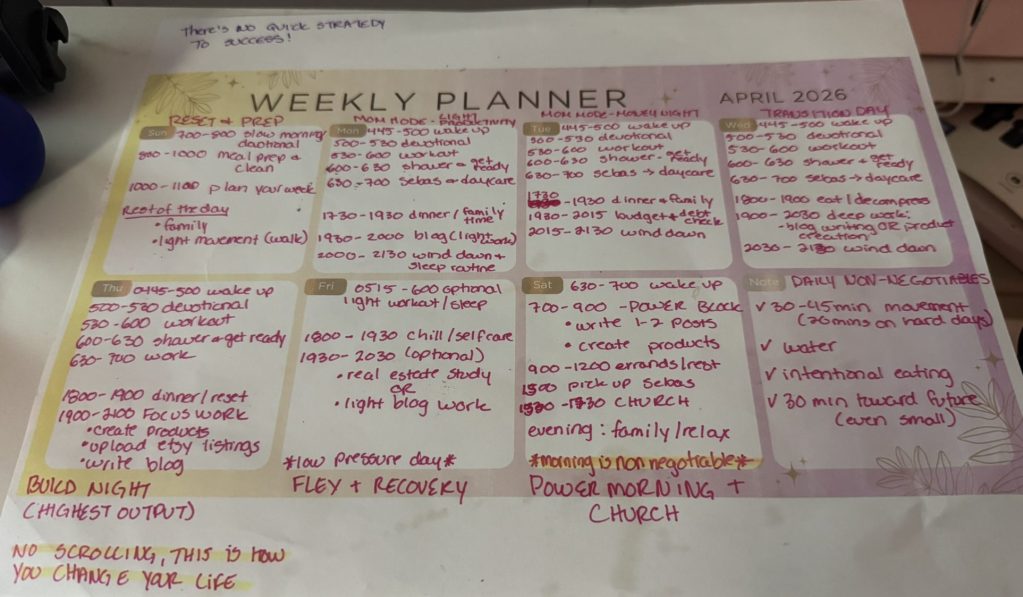 THERE'S NO QUICK STRATEDY
TO SUCCESS!
WEEKLY PLANNER
APRIL 2026
RESET & PREP
Sun
700-800 slow morning
davotional
800-1000 meal prep &
clean
1000-1100 plan your week
Rest of the day
• family
• light movement (walk)
MOM MODE - LIGHT
PRODUCTIVITY
Mon
0445-500 wake up
500-530 devotional
530-600 workout
600-630 shower + get
ready
630-700 sebas → daycare
1730-1930 dinner/family
time
1930-2000 blog (light
work)
2000-2130 wind down +
sleep routine
MOM MODE - MONEY NIGHT
Tue
0445-500 wake up
500-530 devotional
530-600 workout
600-630 shower + get
ready
630-700 sebas → daycare
1730
-1930 dinner + family
1930-2015 budget + debt
check
2015-2130 wind down
TRANSITION DAY
Wed
0445-500 wake up
500-530 devotional
530-600 workout
600-630 shower + get
ready
630-700 sebas → daycare
1800-1900 eat/decompress
1900-2030 deep work:
- blog writing OR product
creation
2030-2130 wind down
Thu
0445-500 wake up
500-530 devotional
530-600 workout
600-630 shower + get ready
630-700 work
1800-1900 dinner/reset
1900-2100 FOCUS WORK
• create products
• upload etsy listings
• write blog
BUILD NIGHT
(HIGHEST OUTPUT)
Fri
0515-600 optional
light workout/sleep
1800-1930 chill/selfcare
1930-2030 (optional)
• real estate study
OR
• light blog work
*low pressure day*
FLEY + RECOVERY
Sat
630-700 wake up
700-900 -POWER BLOCK
• write 1-2 posts
• create products
900-1200 errands/rest
1500 pick up sebas
1530-1730 CHURCH
evening: family/relax
*morning is non negotiable*
POWER MORNING +
CHURCH
Note
DAILY NON-NEGOTIABLES
✓ 30-45min movement
(20mins on hard days)
✓ water
✓ intentional eating
✓ 30 min toward future
(even small)
NO SCROLLING, THIS IS HOW
YOU CHANGE YOUR LIFE